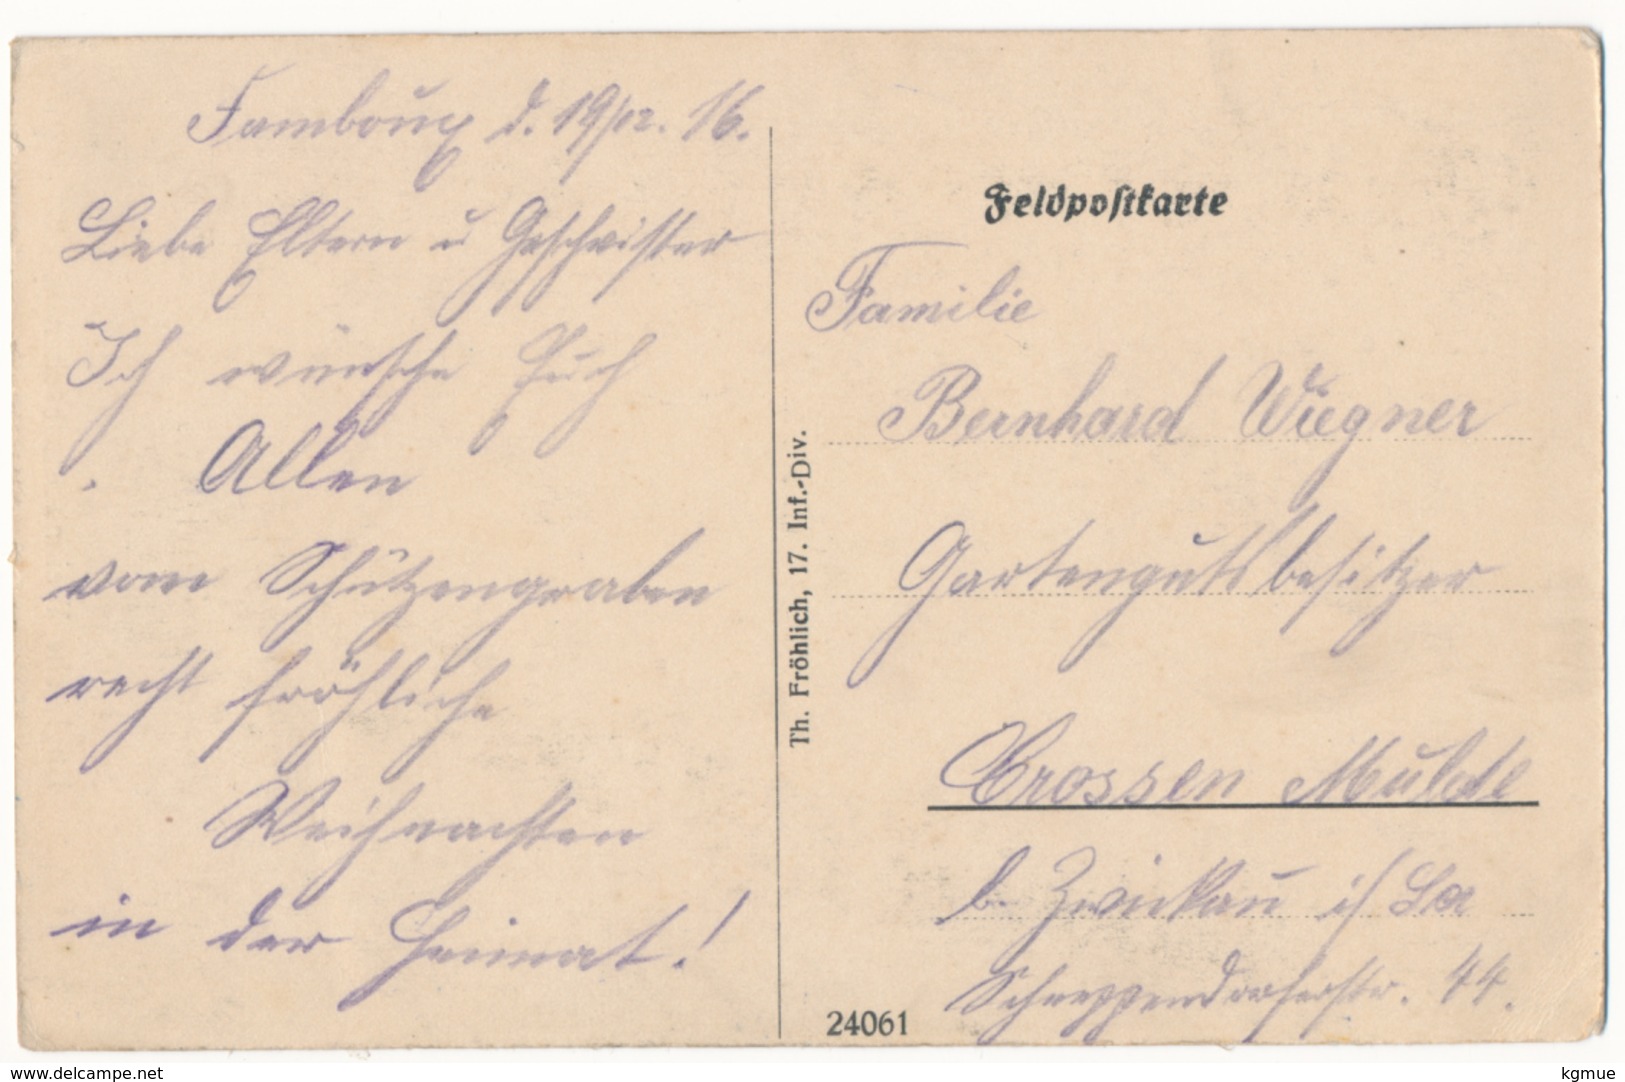 Famboux d. 19/12. 16.
Liebe Eltern u Geschwister
Ich wünsche Euch
. Allen
vom Schützengraben
recht fröhliche
Weihnachten
in der Heimat!
Th. Fröhlich, 17. Inf.-Div.
Feldpostkarte
Familie
Bernhard Wiegner
Gartengutsbesitzer
Crossen Mulde
b. Zwickau i/ Sa
Schneppendorferstr. 44.
24061
www.delcampe.net
kgmue